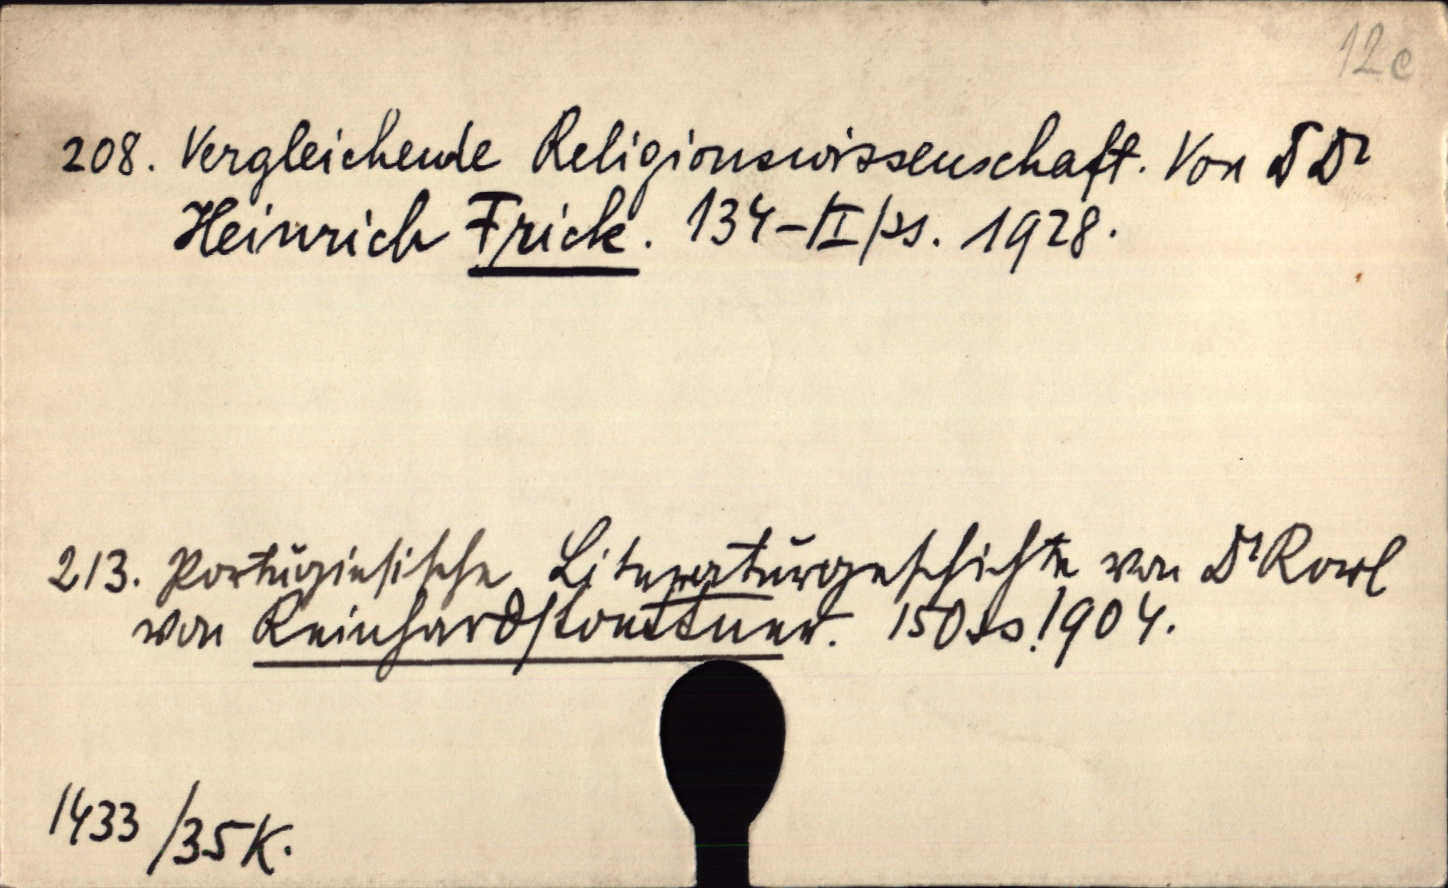 12c
208. Vergleichende Religionswissenschaft. Von D Dr
Heinrich Frick. 134-/II/ss. 1928.
213. Portugiesische Literaturgeschichte von Dr Karl
von Reinhardstoettner. 150 ss. 1904.
1433/35K.